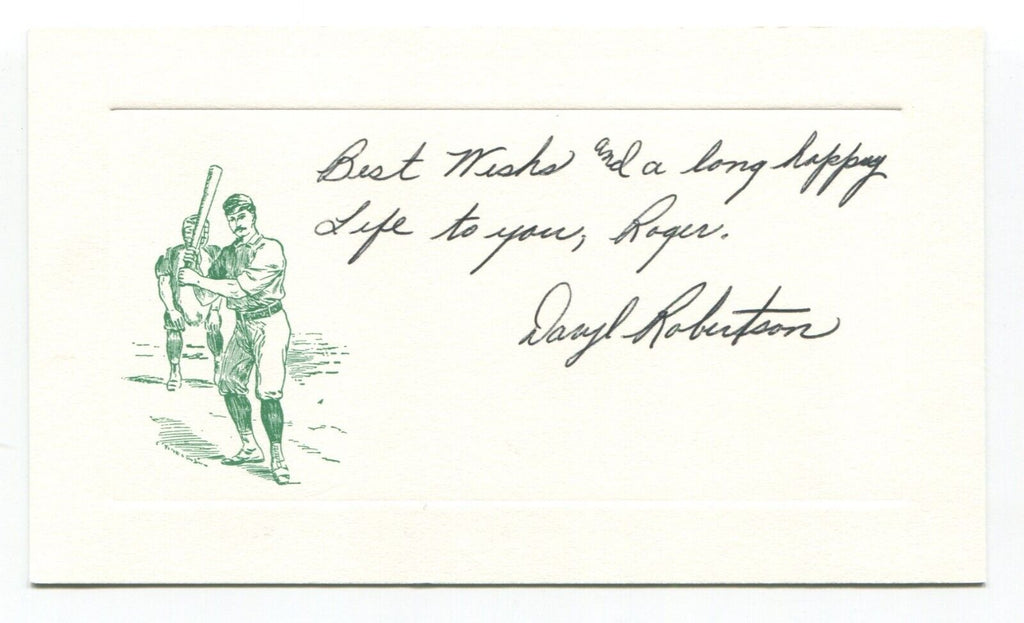 Best Wishs and a long happy
Life to you, Roger.
Daryl Robertson